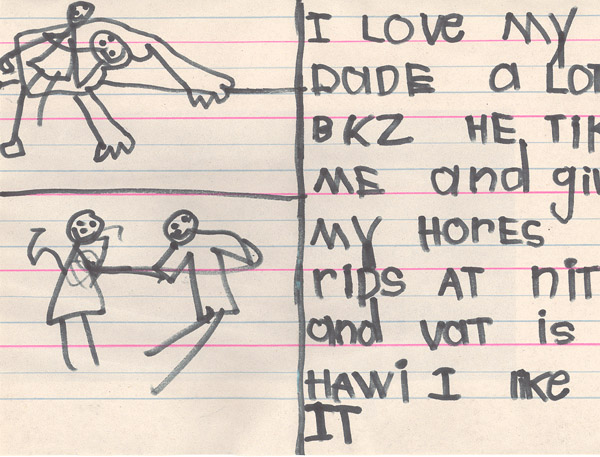 I LOVE MY
DADE a LOT
BKZ HE TIK
ME and giv
MY HORES
rIDS AT nIT
and vaT is
HAWi I like
IT